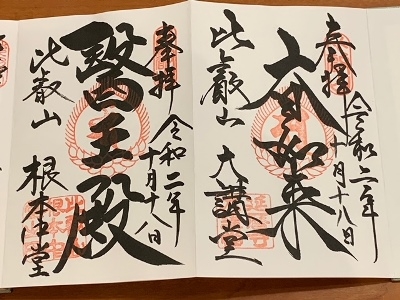 奉拝
令和二年
十月十八日
大日如来
比叡山 大講堂
奉拝
令和二年
十月十八日
醫王殿
比叡山 根本中堂